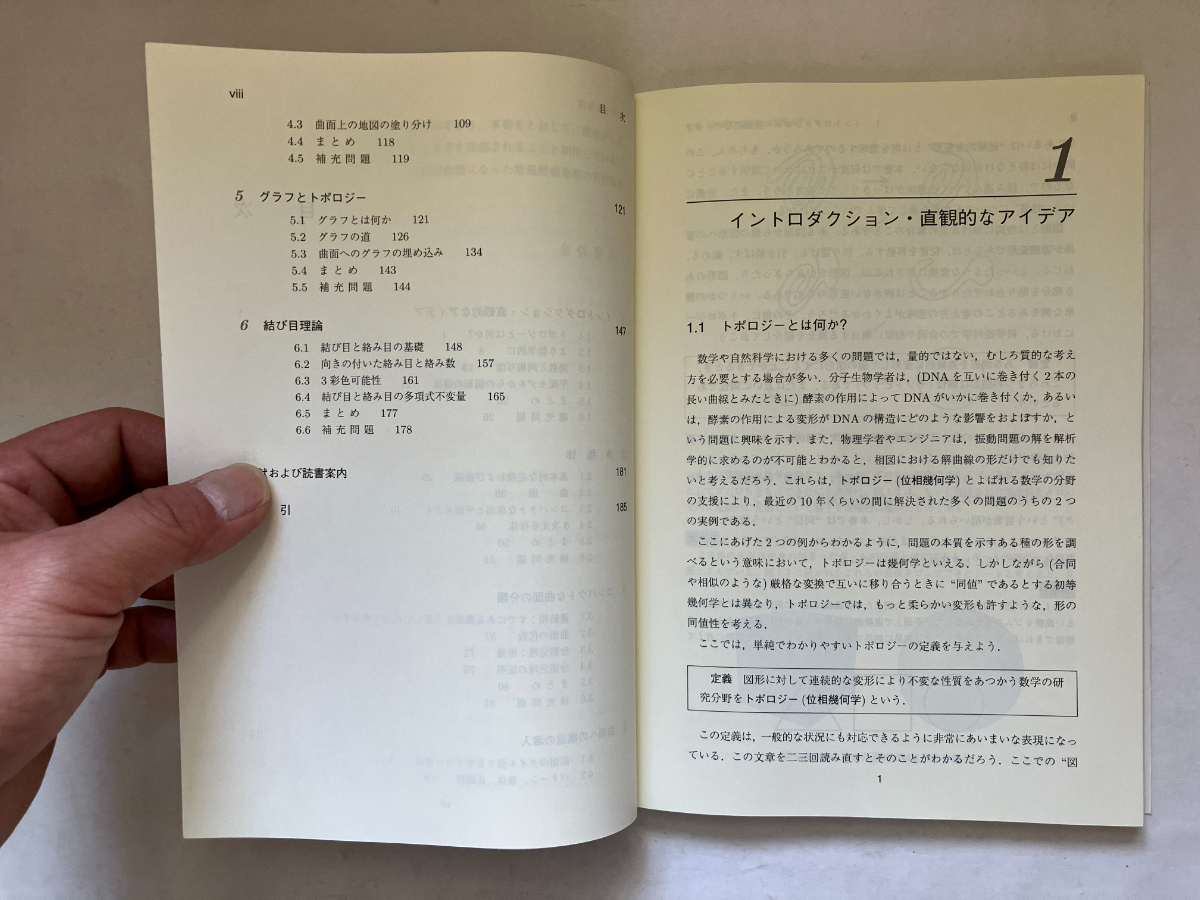 viii
目 次
4.3 曲面上の地図の塗り分け 109
4.4 まとめ 118
4.5 補充問題 119
5 グラフとトポロジー 121
5.1 グラフとは何か 121
5.2 グラフの道 126
5.3 曲面へのグラフの埋め込み 134
5.4 まとめ 143
5.5 補充問題 144
6 結び目理論 147
6.1 結び目と絡み目の基礎 148
6.2 向きの付いた絡み目と絡み数 157
6.3 3彩色可能性 161
6.4 結び目と絡み目の多項式不変量 165
6.5 まとめ 177
6.6 補充問題 178
および読書案内 181
引 185
1
イントロダクション・直観的なアイデア
1.1 トポロジーとは何か?
数学や自然科学における多くの問題では,量的ではない,むしろ質的な考え
方を必要とする場合が多い.分子生物学者は,(DNAを互いに巻き付く2本の
長い曲線とみたときに) 酵素の作用によってDNAがいかに巻き付くか,あるい
は,酵素の作用による変形がDNAの構造にどのような影響をおよぼすか,と
いう問題に興味を示す.また,物理学者やエンジニアは,振動問題の解を解析
学的に求めるのが不可能とわかると,相図における解曲線の形だけでも知りた
いと考えるだろう.これらは,トポロジー (位相幾何学) とよばれる数学の分野
の支援により,最近の10年くらいの間に解決された多くの問題のうちの2つ
の実例である.
ここにあげた2つの例からわかるように,問題の本質を示すある種の形を調
べるという意味において,トポロジーは幾何学といえる.しかしながら (合同
や相似のような) 厳格な変換で互いに移り合うときに “同値” であるとする初等
幾何学とは異なり,トポロジーでは,もっと柔らかい変形も許すような,形の
同値性を考える.
ここでは,単純でわかりやすいトポロジーの定義を与えよう.
定義 図形に対して連続的な変形により不変な性質をあつかう数学の研
究分野をトポロジー (位相幾何学) という.
この定義は,一般的な状況にも対応できるように非常にあいまいな表現になっ
ている.この文章を二三回読み直すとそのことがわかるだろう.ここでの “図
1